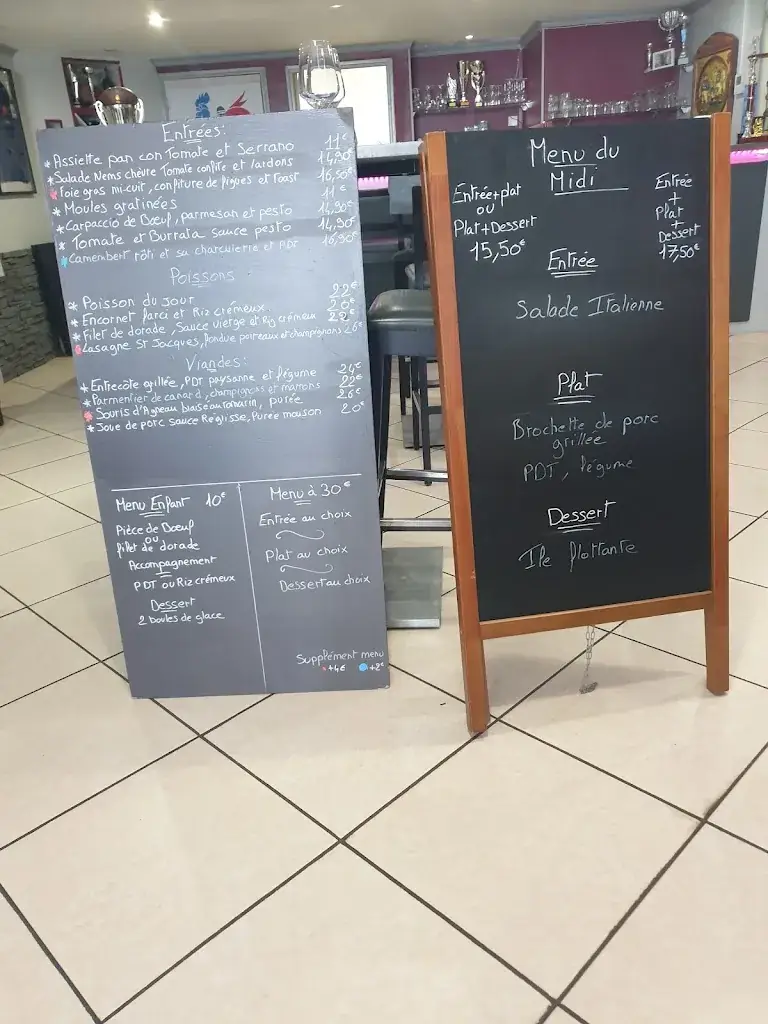 Entrées:
* Assiette pan con Tomate et Serrano 11€
* Salade Nems chèvre Tomate confite et lardons 14,90€
* Foie gras mi-cuit, confiture de figues et Toast 16,50€
* Moules gratinées 11€
* Carpaccio de Bœuf, parmesan et pesto 14,90€
* Tomate et Burrata sauce pesto 14,90€
* Camembert rôti et sa charcuterie et PDT 16,90€
Poissons
* Poisson du jour 22€
* Encornet farci et Riz crémeux 20€
* Filet de dorade, Sauce vierge et Riz crémeux 22€
* Lasagne St Jacques, fondue poireaux et champignons 26€
Viandes:
* Entrecôte grillée, PDT paysanne et légume 24€
* Parmentier de canard, champignons et marrons 22€
* Souris d'Agneau braisé au romarin, purée 26€
* Joue de porc sauce Réglisse, Purée maison 20€
Menu Enfant 10€
Pièce de Bœuf
ou
filet de dorade
Accompagnement
PDT ou Riz crémeux
Dessert
2 boules de glace
Menu à 30€
Entrée au choix
Plat au choix
Dessert au choix
Supplément menu
+4€ +2€
Menu du
Midi
Entrée+plat
ou
Plat+Dessert
15,50€
Entrée
+
Plat
+
Dessert
17,50€
Entrée
Salade Italienne
Plat
Brochette de porc
grillée
PDT, légume
Dessert
Ile flottante